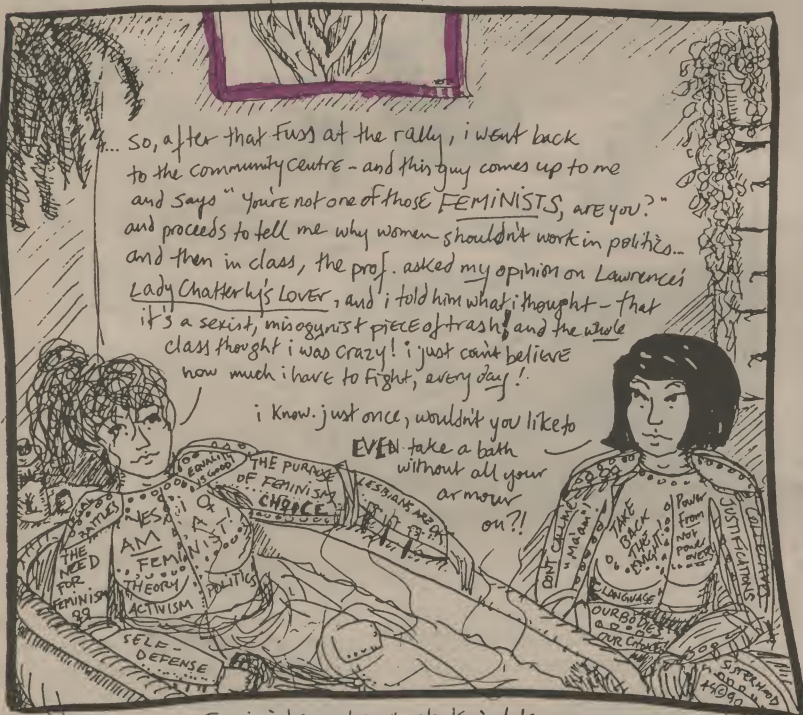 ... so, after that fuss at the rally, i went back
to the community centre - and this guy comes up to me
and says "you're not one of those FEMINISTS, are you?"
and proceeds to tell me why women shouldn't work in politics...
and then in class, the prof. asked my opinion on Lawrence's
Lady Chatterly's Lover, and i told him what i thought - that
it's a sexist, misogynist piece of trash! and the whole
class thought i was crazy! i just can't believe
how much i have to fight, every day!
i know. just once, wouldn't you like to
EVEN take a bath
without all your
armour
on?!
BATTLES
THE
NEED
FOR
FEMINISM
YES I
AM
A
FEMINIST!
THEORY
ACTIVISM
POLITICS
SELF-
DEFENSE
EQUALITY
IS GOOD
THE PURPOSE
OF FEMINISM
CHOICE
LESBIANS ARE OK
DON'T CALL ME
"Ma'am"!
TAKE
BACK
THE
NIGHT!
Power
from
not
power
over!
JUSTIFICATIONS
LANGUAGE
OUR BODIES
OUR CHOICE
SISTERHOOD